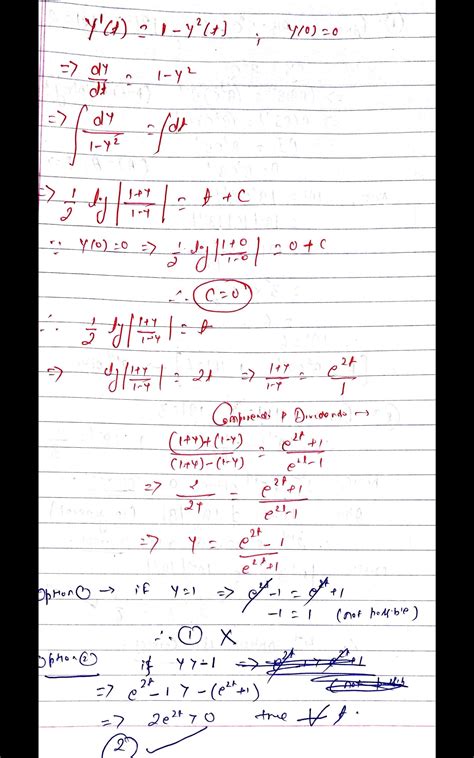 y'(t) = 1 - y²(t) ; y(0) = 0
=> dy/dt = 1 - y²
=> ∫ dy/(1-y²) = ∫ dt
=> 1/2 log |(1+y)/(1-y)| = t + C
∵ y(0) = 0 => 1/2 log |(1+0)/(1-0)| = 0 + C
∴ C = 0
∴ 1/2 log |(1+y)/(1-y)| = t
=> log |(1+y)/(1-y)| = 2t => (1+y)/(1-y) = e^2t/1
Componendo & Dividendo →
((1+y)+(1-y))/((1+y)-(1-y)) = (e^2t+1)/(e^2t-1)
=> 2/2y = (e^2t+1)/(e^2t-1)
=> y = (e^2t-1)/(e^2t+1)
Option ① → if y=1 => e^2t - 1 = e^2t + 1
-1 = 1 (not possible)
∴ ① X
Option ② if y > -1
=> e^2t - 1 > -(e^2t+1)
=> 2e^2t > 0 true ∀ t.
② ✓